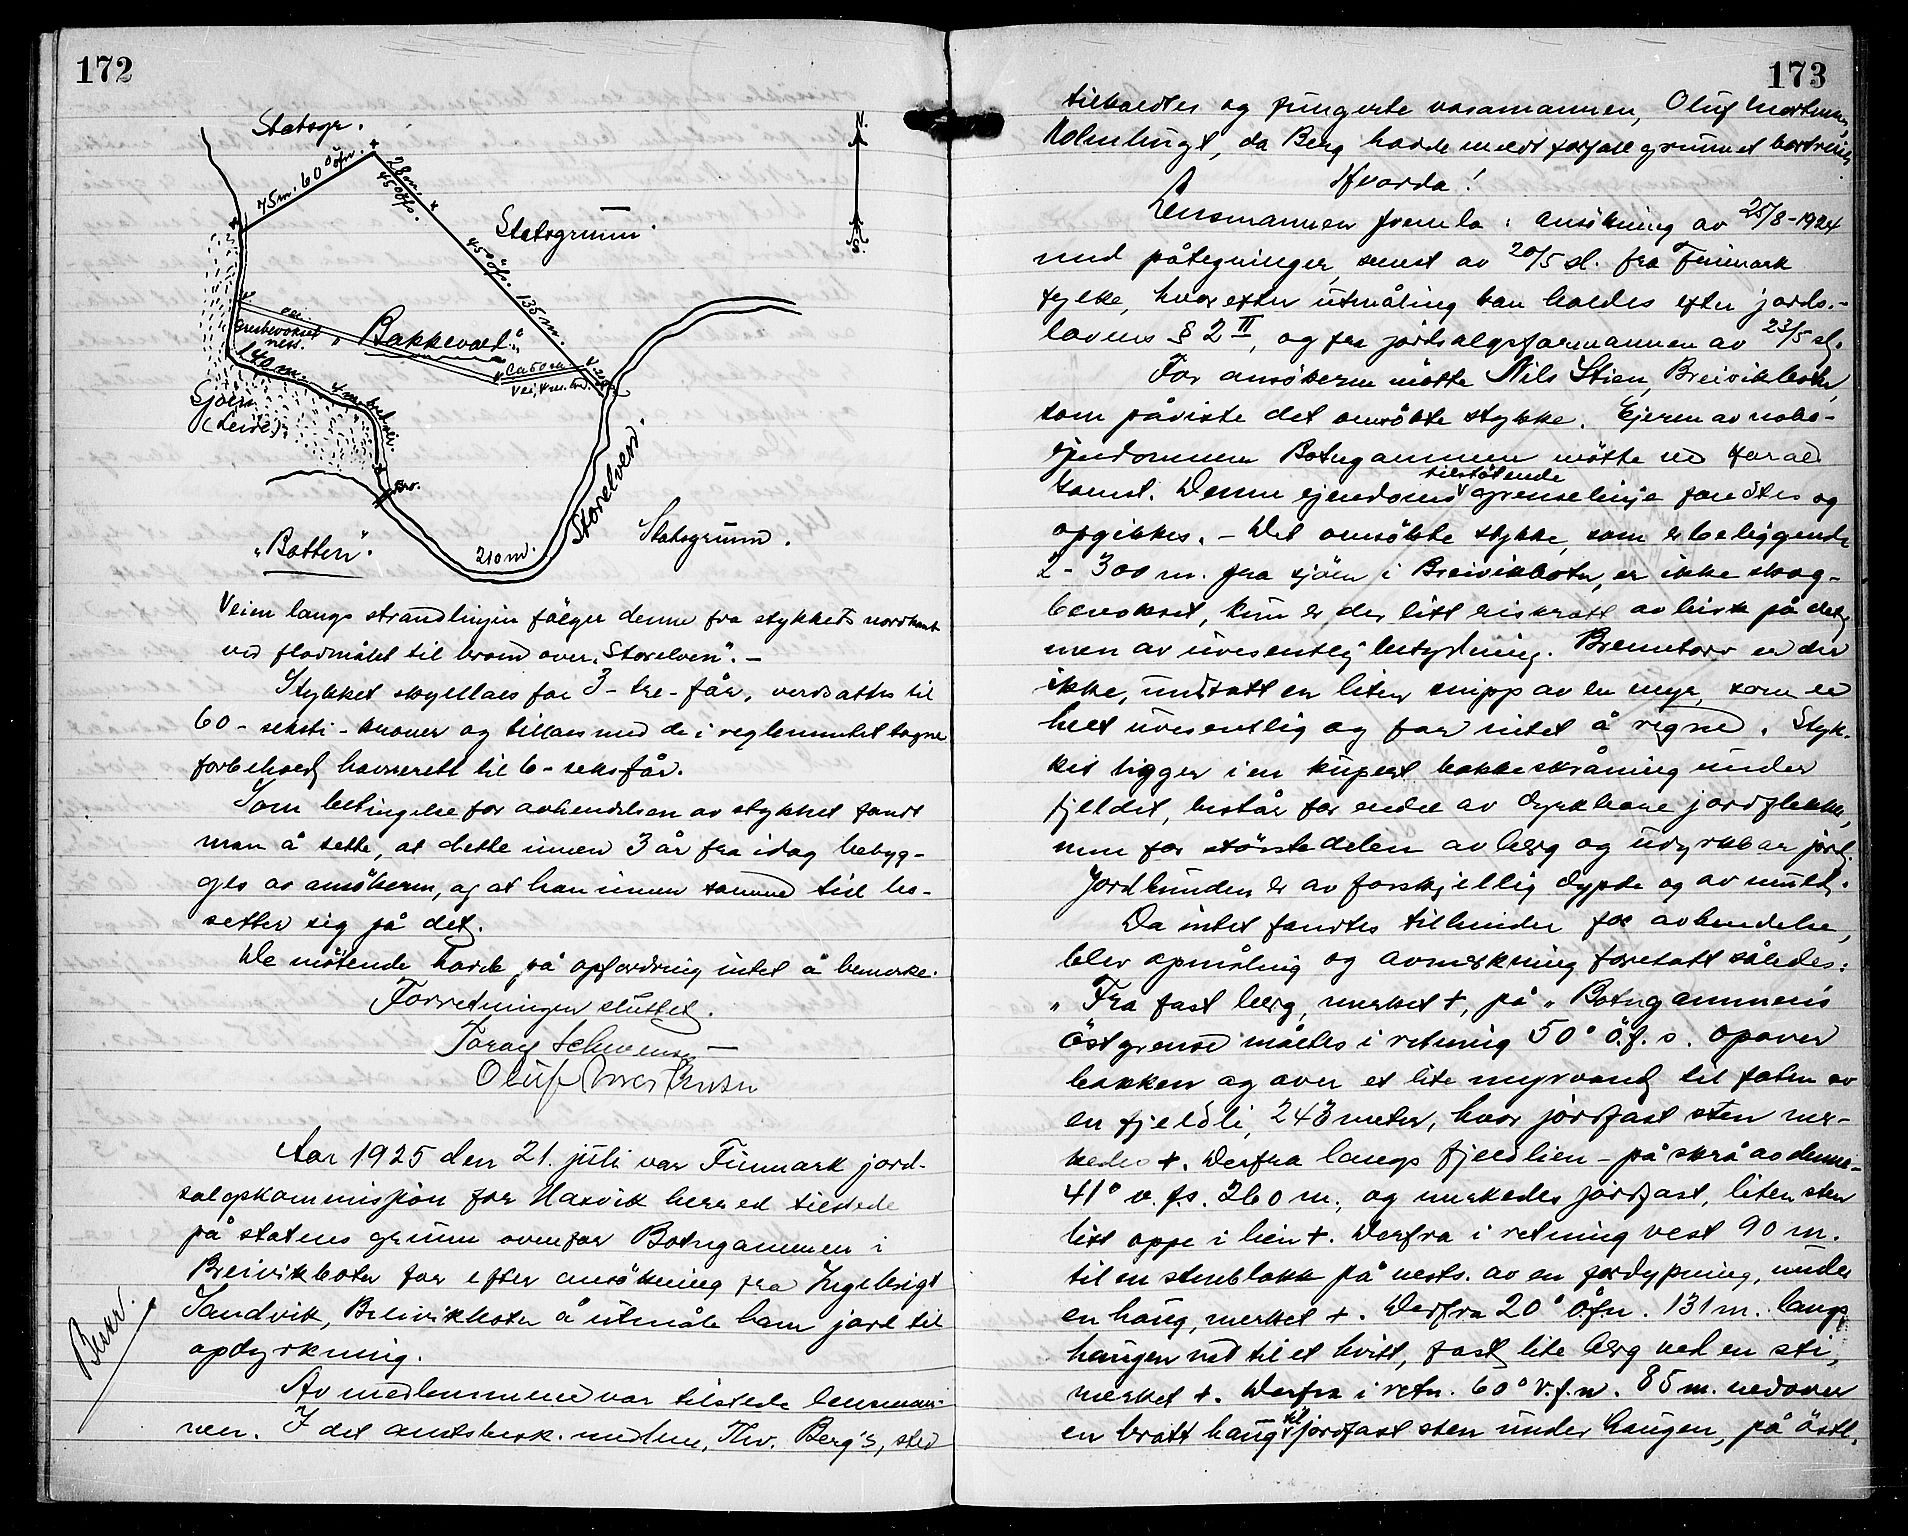 172
Statsgr.
N.
75 m. 60° öfn.
28 m.
45° öfs.
Statsgrunn.
45° öfs. 135 m.
S.
vei.
Gresbevokset
ness.
"Bakkevold"
ca 60 m
Vei, 4 m. br.
140 m.
4 m. bred vei
Sjøen
(Leire)
Br.
Storelven.
Statsgrunn.
"Botten".
210 m.
Veien langs strandlinjen fölger denne fra stykkets nordkant
ved flodmålet til broen over "Storelven". —
Stykket skyldlaes for 3 - tre - får, verdsattes til
60 - seksti - kroner og tillaes med de i reglementet tagne
forbehold havnerett til 6 - seks får.
Som betingelse for avhendelsen av stykket fandt
man å sette, at dette innen 3 år fra idag bebyg-
ges av ansökeren, og at han innen samme tid bo-
setter sig på det.
De mötende havde på opfordring intet å bemerke.
Forretningen sluttet.
Oluf Mortensen
Aar 1925 den 21. juli var Finmark jord-
salgskommisjon for Hasvik herred tilstede
på statens grunn ovenfor Botngammen i
Breivikbotn for efter ansökning fra Ingebrigt
Sandvik, Breivikbotn å utmåle ham jord til
opdyrkning.
Beskr.
Av medlemmene var tilstede lensman-
nen. I det amtsbesk. medlem, Thv. Berg's, sted
173
tilkaldtes og fungerte varamannen, Oluf Mortensen,
Holmbugt, da Berg hadde meldt forfall grunnet bortreise.
Hvorda!
Lensmannen fremla: ansökning av 25/8-1924
med påtegninger, senest av 20/5 sl. fra Finmark
fylke, hvorefter utmåling kan holdes efter jords.-
lovens § 2 II, og fra jordsalgsformannen av 23/5 sl.
For ansökeren mötte Nils Stien, Breivikbotn,
som påviste det omsökte stykke. Ejeren av nabo-
ejendommen Botngammen mötte ved forret
komst. Denne ejendoms tilstötende grenselinje fandtes og
opgikkes. - Det omsökte stykke, som er beliggende
2-300 m. fra sjöen i Breivikbotn, er ikke skog-
bevokset, kun er der litt riskratt av birk på det,
men av uvesentlig betydning. Brenntorv er der
ikke, undtatt en liten snipp av en myr, som er
helt uvesentlig og for intet å regne. Styk-
ket ligger i en kupert bakkeskråning under
fjeldet, består for endel av dyrkbare jordflekker,
men for störstedelen av berg og udyrkbar jord.
Jordbunden er av forskjellig dypde og av muld.
Da intet fandtes tilhinder for avhendelse,
blev opmåling og avmerkning foretatt således:
"Fra fast berg, merket +, på "Botngammens
östgrense måltes i retning 50° ö.f.s. opover
bakken og over et lite myrvand til foten av
en fjeldli, 243 meter, hvor jordfast sten mer-
kedes +. Derfra langs fjellien - på skrå av denne -
41° v.f.s. 260 m., og merkedes jordfast, liten sten
litt oppe i lien +. Derfra i retning vest 90 m.
til en stenblokk på vests. av en fordypning, under
en haug, merket +. Derfra 20° ö.f.n. 131 m. langs
haugen ned til et hvitt, fast, lite berg ved en sti,
merket +. Derfra i retn. 60° v.f.n. 85 m. nedover
en bratt haug til jordfast sten under haugen, på östl.